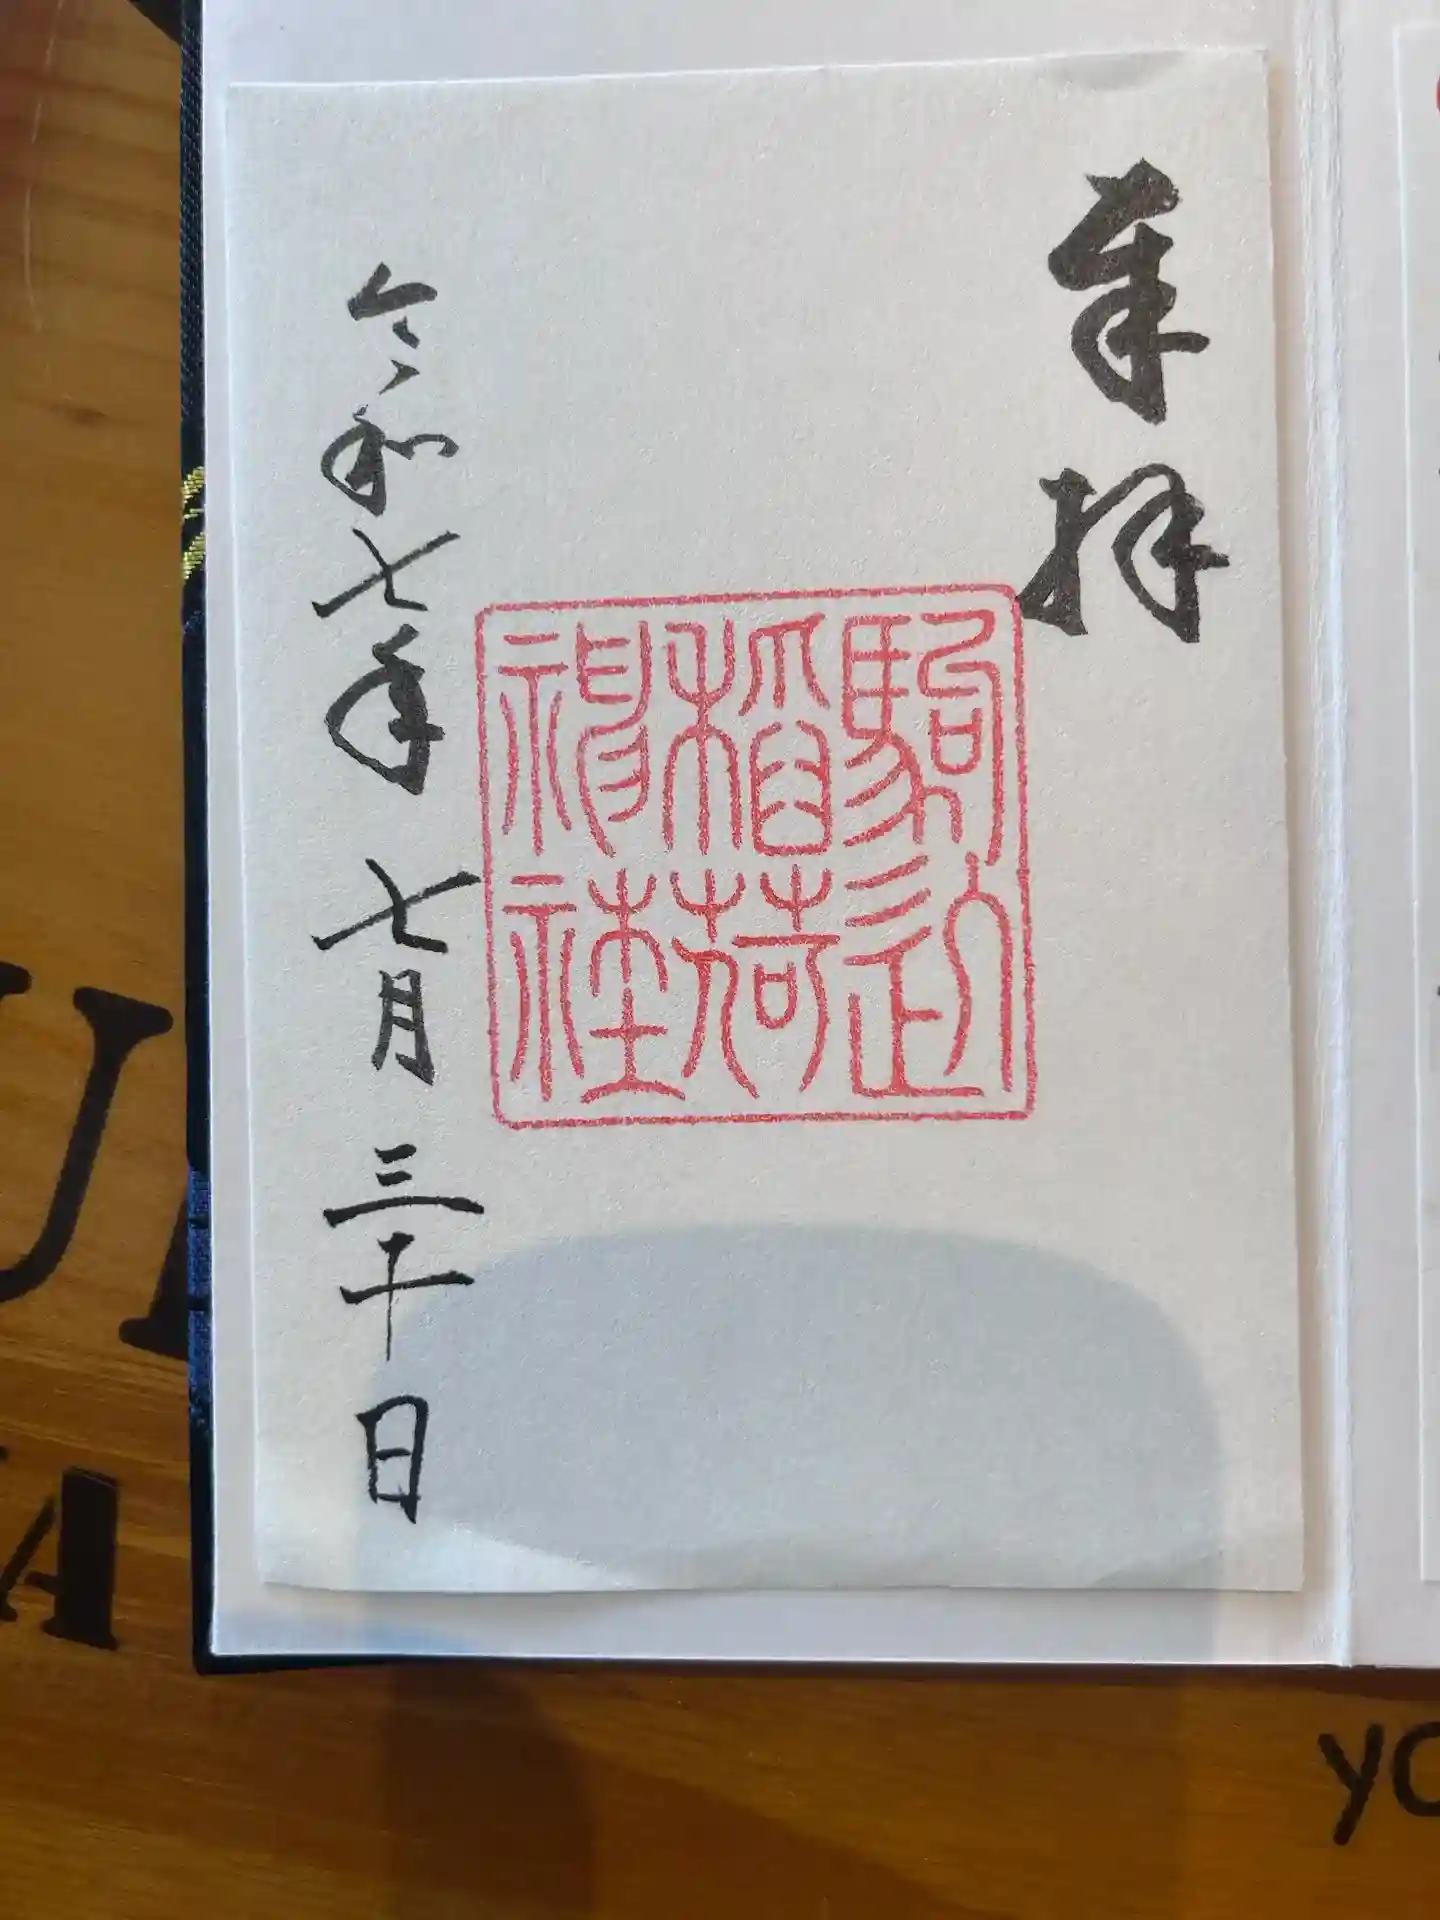 奉拝
駒込
稲荷
神社
令和七年 七月 三十日